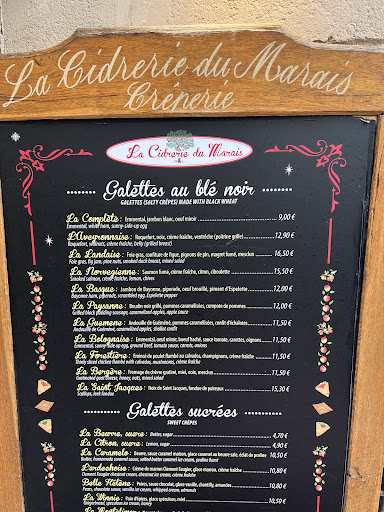 La Cidrerie du Marais
Crêperie
La Cidrerie du Marais
Galettes au blé noir
GALETTES (SALTY CRÊPES) MADE WITH BLACK WHEAT
La Complète : Emmental, jambon blanc, oeuf miroir 9,00 €
Emmental, white ham, sunny-side-up egg
L'Aveyronnaise : Roquefort, noix, crème fraîche, ventrèche (poitrine grillée) 12,90 €
Roquefort, walnuts, crème fraîche, belly (grilled breast)
La Landaise : Foie gras, confiture de figue, pignons de pin, magret fumé, mesclun 16,50 €
Foie gras, fig jam, pine nuts, smoked duck breast, mixed salad
La Norvegienne : Saumon fumé, crème fraîche, citron, ciboulette 15,50 €
Smoked salmon, crème fraîche, lemon, chives
La Basque : Jambon de Bayonne, piperade, oeuf brouillé, piment d'Espelette 12,00 €
Bayonne ham, piperade, scrambled egg, Espelette pepper
La Paysanne : Boudin noir grillé, pommes caramélisées, compote de pommes 12,00 €
Grilled black pudding sausage, caramelized apples, apple sauce
La Guemene : Andouille de Guémené, pommes caramélisées, confit d'échalotes 11,50 €
La Bolognaise : Emmental, oeuf miroir, boeuf haché, sauce tomate, carottes, oignons 11,50 €
Emmental, sunny-side up egg, ground beef, tomato sauce, carrots, onions
La Forestière : Emincé de poulet flambé au calvados, champignons, crème fraîche 11,50 €
Thinly sliced chicken flambé with calvados, mushrooms, crème fraîche
La Bergère : Fromage de chèvre gratiné, miel, noix, mesclun 11,50 €
Gratinated goat cheese, honey, nuts, mixed salad
La Saint Jacques : Noix de Saint Jacques, fondue de poireaux 15,30 €
Scallops, leek fondue
Galettes sucrées
SWEET CRÊPES
La Beurre, sucre : Butter, sugar 4,70 €
La Citron, sucre : Lemon, sugar 4,90 €
La Caramelo : Beurre, sauce caramel maison, glace caramel au beurre salé, éclat de praline 10,50 €
Butter, homemade caramel sauce, salted butter caramel ice cream, praline burst
L'ardechoise : Crème de marron Clement Faugier, glace marron, crème fraîche 10,80 €
Clement Faugier chestnut cream, chestnut ice cream, crème fraîche
Belle Hélène : Poires, sauce chocolat, glace vanille, chantilly, amandes 10,80 €
Pears, chocolate sauce, vanilla ice cream, whipped cream, almonds
La Manie : Pain d'épices, glace spéculoos, miel 10,50 €